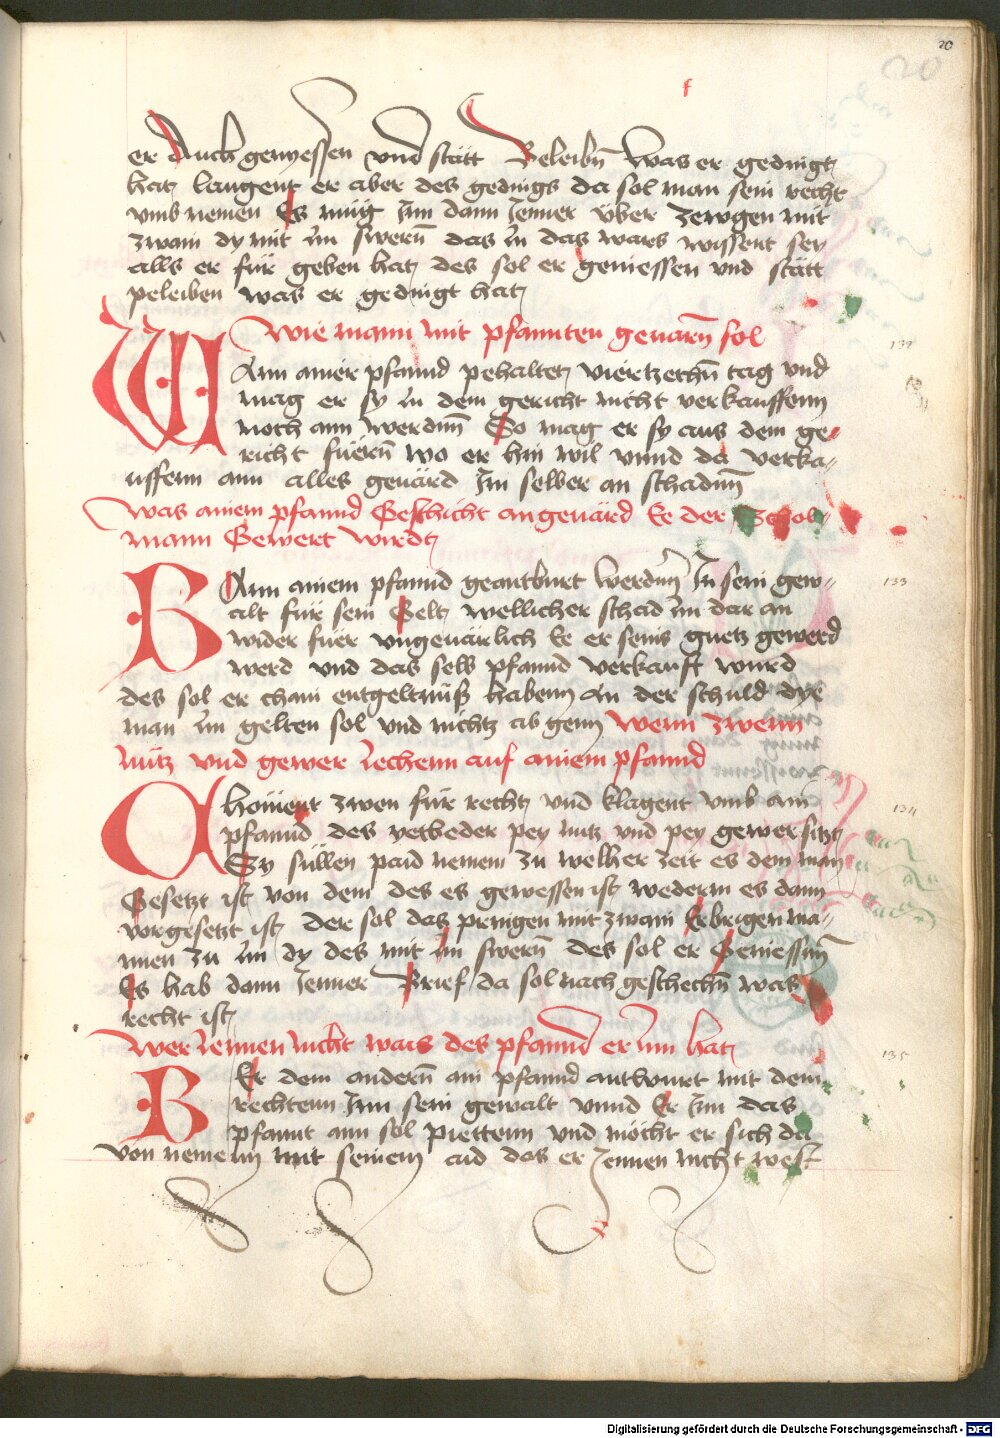 20
er Auch genyessen vnd stätt Beleibn̄ Was er gedingt
hatz laugent er aber des gedings da sol man sein recht
vmb nemen Es müg Im dann Jenner über zewgen mit
zwain dy mit im swern̄ das in das wars wissent sey
alls er für geben hatz des sol er geniessen vnd stätt
peleiben was er gedingt hatz
Wie mann mit pfannten geuarn̄ sol
WAnn ainer pfannd pehaltet viertzechn̄ tag vnd
mag er sy in dem gericht nicht verkauffenn
noch ann werdnn̄ So mag er sy aus dem ge-
richt füern̄ wo er hin wil vnnd da verka-
uffenn ann alles geuärd Im selber an schadnn̄
Was ainem pfannd Geschicht angeuärd Ee der
mann Gewert wirdt
BAnn ainem pfannd geantburt werdnn̄ In sein gew-
alt für sein Gelt wellicher schad im dar an
wider fuer vngeuärlich Ee er seins guetz gewerd
werd vnd das selb pfannd verkaufft wurd
des sol er chain entgeltnüß habenn an der schuld dye
man im gelten sol vnd nichtz ab genn Wenn zwenn
nütz vnd gewer iechenn auf ainem pfannd
Choment zwen für recht vnd klagent vmb ain
pfannd des yetweder pey nutz vnd pey gewer sitzt
Sy süllen paid nemem zu welher zeit es dem man
Gesetzt ist von dem des es gewessen ist wederm es dann
vorgesetzt ist der sol das pringen mit zwain Erbrigen ma-
nnen zu im dy des mit im swern̄ des sol er Geniessnn̄
Es hab dann Jenner Brief da sol nach geschechn̄ was
recht ist
Wer iennen nicht wais des pfannd er inn hatz
BEr dem andern̄ ain pfannd antwurt mit dem
rechtenn Inn sein gewalt vnnd Er Im das
pfannt ann sol piettenn vnd möcht er sich da
von nemenn mit seinem aid das er Jennen nicht west
133
134
135
Digitalisierung gefördert durch die Deutsche Forschungsgemeinschaft - DFG